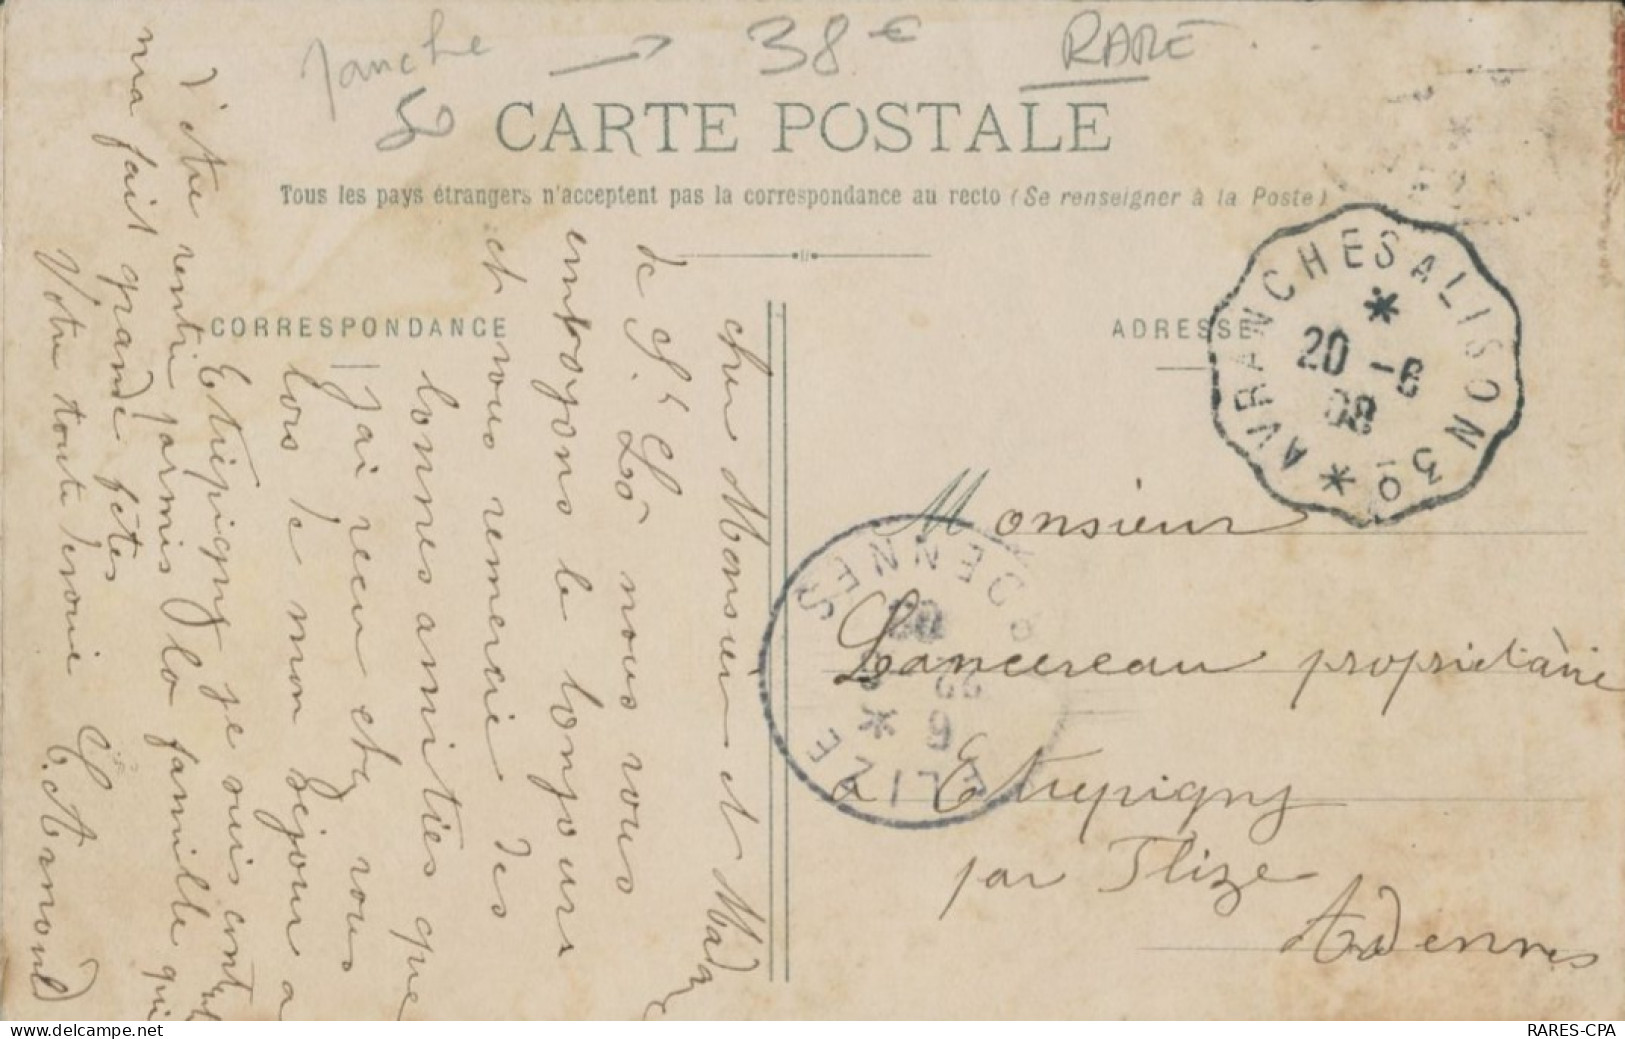 Manche → 38 € RARE
50
CARTE POSTALE
Tous les pays étrangers n'acceptent pas la correspondance au recto (Se renseigner à la Poste)
CORRESPONDANCE
ADRESSE
AVRANCHES A LISON 3°
20 -6
08
FLIZE
ARDENNES
22
6
08
Monsieur
Lancereau propriétaire
à Etrepigny
par Flize
Ardennes
cher Monsieur et Mad
de St Lô nous vous
envoyons le bonjour
et vous remercie des
bonnes amitiés que
j'ai reçu chez vous
lors de mon séjour a
Etrepigny je suis content
d'etre rentré parmis la famille qui
ma fait grande fêtes
Votre toute devoué
RARES-CPA